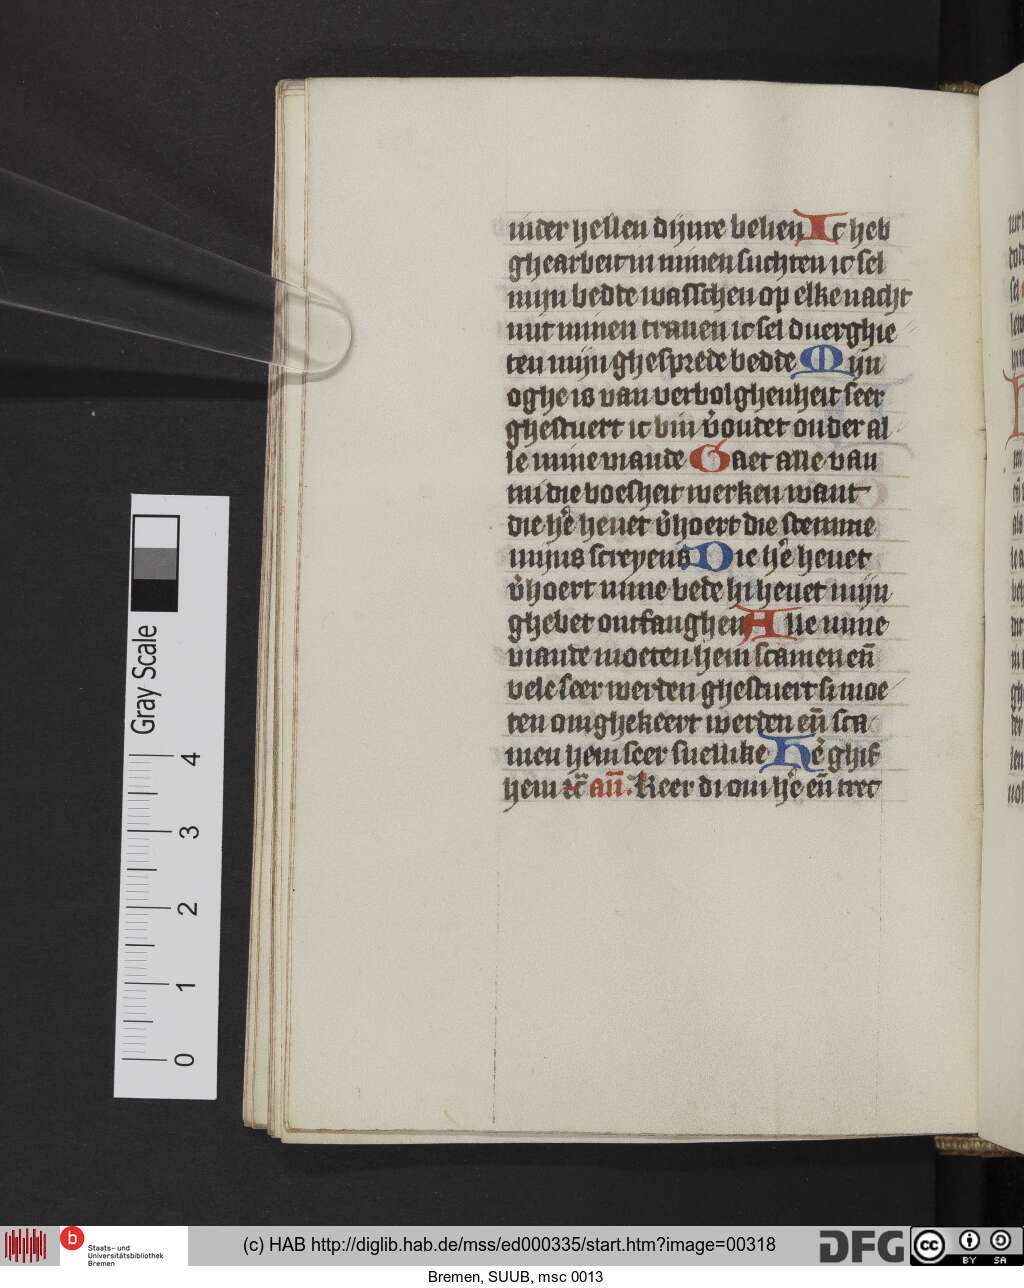 inder hellen dijnre belien Ic heb
ghearbeit in minen suchten ic sel
mijn bedde wasschen op elke nacht
mit minen tranen ic sel duerghie
ten mijn ghesprede bedde Mijn
oghe is van verbolghenheit seer
ghestuert ic bin v̉oudet onder al
le mine viande Gaet alle van
mi die boesheit werken want
die hẻ heuet v̉hoert die stemme
mijns screyens Die hẻ heuet
v̉hoert mine bede hi heuet mijn
ghebet ontfanghen Alle mine
viande moeten hem scamen en̄
vele seer werden ghestuert si moe
ten om ghekeert werden en̄ sca
men hem seer snellike Hẻ ghif
hem ⁊c̄ an̄. Keer di om hẻ en̄ trec
Gray Scale
4
3
2
1
0
b
Staats- und
Universitätsbibliothek
Bremen
(c) HAB http://diglib.hab.de/mss/ed000335/start.htm?image=00318
DFG
cc
BY SA
Bremen, SUUB, msc 0013